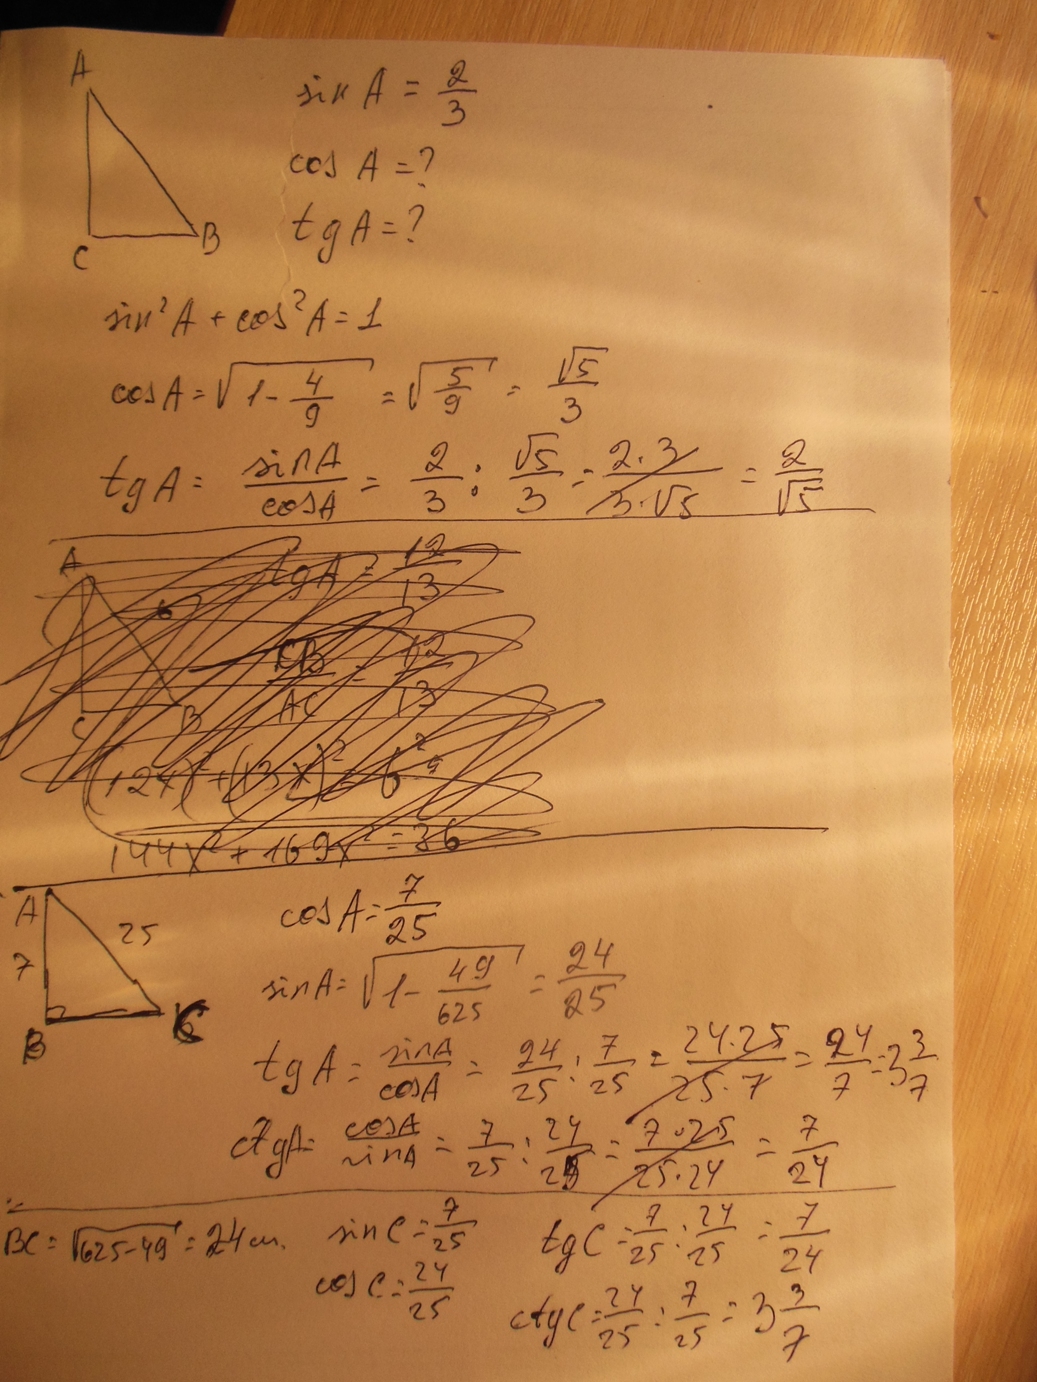 A
C
B
sin A = 2/3
cos A = ?
tg A = ?
sin²A + cos²A = 1
cos A = √(1 - 4/9) = √(5/9) = √5/3
tg A = sin A/cos A = 2/3 : √5/3 = 2·3/3·√5 = 2/√5
A
C
B
6
tg A = 12/13
CB/AC = 12/13
144x² + 169x² = 36
A
7
25
B
C
cos A = 7/25
sin A = √(1 - 49/625) = 24/25
tg A = sin A/cos A = 24/25 : 7/25 = 24·25/25·7 = 24/7 = 3 3/7
ctg A = cos A/sin A = 7/25 : 24/25 = 7·25/25·24 = 7/24
BC = √(625-49) = 24 см.
sin C = 7/25
cos C = 24/25
tg C = 7/25 : 24/25 = 7/24
ctg C = 24/25 : 7/25 = 3 3/7